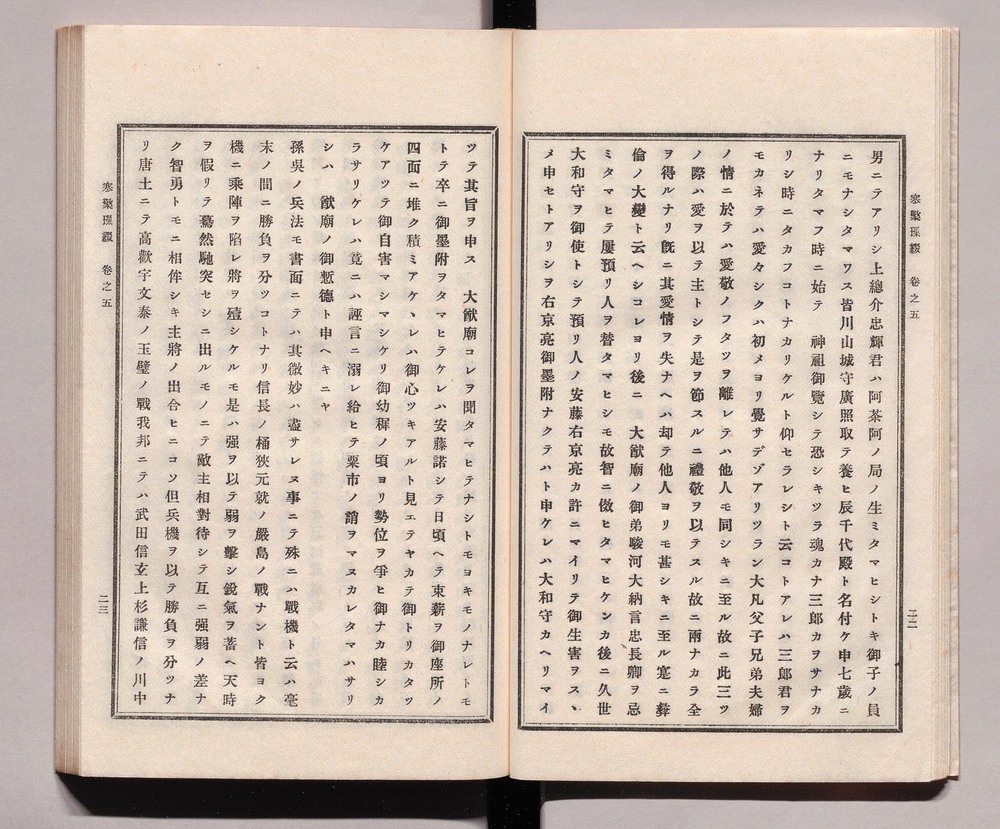 寒檠璅綴　卷之五
二二
男ニテアリシ上總介忠輝君ハ阿茶阿ノ局ノ生ミタマヒシトキ御子ノ員
ニモナシタマワス皆川山城守廣照取テ養ヒ辰千代殿ト名付ケ申七歳ニ
ナリタマフ時ニ始テ　神祖御覽シテ恐シキツラ魂カナ三郎カヲサナカ
リシ時ニタカフコトナカリケルト仰セラレシト云コトアレハ三郎君ヲ
モカネテハ愛々シクハ初メヨリ覺サデゾアリツラン大凡父子兄弟夫婦
ノ情ニ於テハ愛敬ノフタツヲ離レテハ他人モ同シキニ至ル故ニ此三ツ
ノ際ハ愛ヲ以テ主トシテ是ヲ節スルニ禮敬ヲ以テスル故ニ兩ナカラ全
ヲ得ルナリ既ニ其愛情ヲ失ナヘハ却テ他人ヨリモ甚シキニ至ル寔ニ彜
倫ノ大變ト云ヘシコレヨリ後ニ　大猷廟ノ御弟駿河大納言忠長卿ヲ忌
ミタマヒテ屢預リ人ヲ替タマヒシモ故智ニ傚ヒタマヒケンカ後ニ久世
大和守ヲ御使トシテ預リ人ノ安藤右京亮カ許ニマイリテ御生害ヲスヽ
メ申セトアリシヲ右京亮御墨附ナクテハト申ケレハ大和守カヘリマイ
ツテ其旨ヲ申ス　大猷廟コレヲ聞タマヒテナシトモヨキモノナレトモ
トテ卒ニ御墨附ヲタマヒテケレハ安藤諾シテ日頃ヘテ束薪ヲ御座所ノ
四面ニ堆ク積ミアケヽレハ御心ツキアルト見ェテヤカテ御トリカタツ
ケアツテ御自害マシマシケリ御幼穉ノ頃ヨリ勢位ヲ爭ヒ御ナカ睦シカ
ラサリケレハ竟ニハ誣言ニ溺レ給ヒテ粟布ノ謂ヲマヌカレタマハサリ
シハ　猷廟ノ御慙德ト申ヘキニヤ
孫吳ノ兵法モ書面ニテハ其微妙ハ盡サレヌ事ニテ殊ニハ戰機ト云ハ毫
末ノ間ニ勝負ヲ分ツコトナリ信長ノ桶狹元就ノ嚴島ノ戰ナント皆ヨク
機ニ乘陣ヲ陷レ將ヲ殪シケルモ是ハ强ヲ以テ弱ヲ擊シ鋭氣ヲ蓄ヘ天時
ヲ假リテ驀然馳突セシニ出ルモノニテ敵主相對待シテ互ニ强弱ノ差ナ
ク智勇トモニ相侔シキ主將ノ出合ヒニコソ但兵機ヲ以テ勝負ヲ分ツナ
リ唐土ニテ高歡宇文泰ノ玉壁ノ戰我邦ニテハ武田信玄上杉謙信ノ川中
寒檠璅綴　卷之五
二三